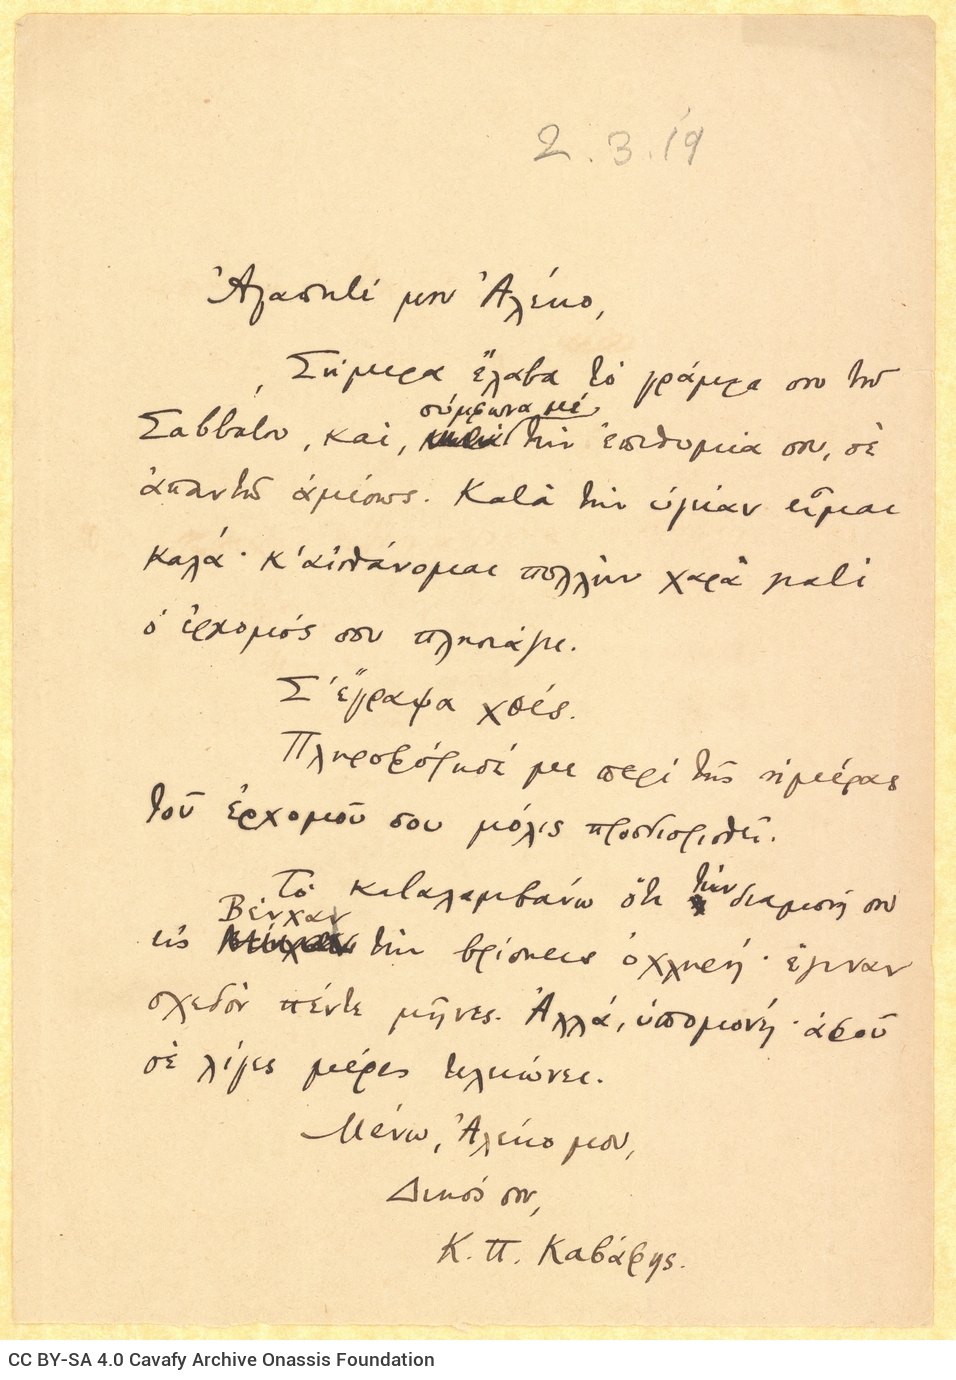 2.3.'19
Ἀγαπητέ μου Ἀλέκο,
Σήμερα ἔλαβα τὸ γράμμα σου τοῦ
σύμφωνα μέ
Σαββάτου, καὶ, τὴν ἐπιθυμία σου, σὲ
ἀπαντῶ ἀμέσως. Κατὰ τὴν ὑγείαν εἶμαι
καλά· κ' αἰσθάνομαι πολλὴν χαρὰ γιατί
ὁ ἐρχομός σου πλησιάζει.
Σ' ἔγραψα χθές.
Πληροφόρησέ με περί τῆς ἡμέρας
τοῦ ἐρχομοῦ σου μόλις προσδιορισθεῖ.
Τὸ καταλαμβάνω ὅτι τὴν διαμονή σου
Βένχαν
εἰς τὴν βρίσκεις ὀχληρή· ἔγιναν
σχεδὸν πέντε μῆνες. Ἀλλά, ὑπομονή· ἀφοῦ
σὲ λίγες μέρες τελειώνει.
Μένω, Ἀλέκο μου,
Δικός σου,
Κ. Π. Καβάφης.
CC BY-SA 4.0 Cavafy Archive Onassis Foundation